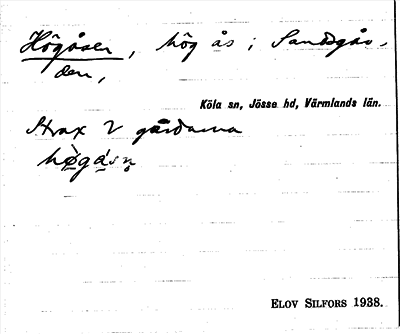 Högåsen, hög ås i Sandsgår-
den,
Köla sn, Jösse hd, Värmlands län.
Strax V gårdarna
hø̀gás̥n̥
ELOV SILFORS 1938.